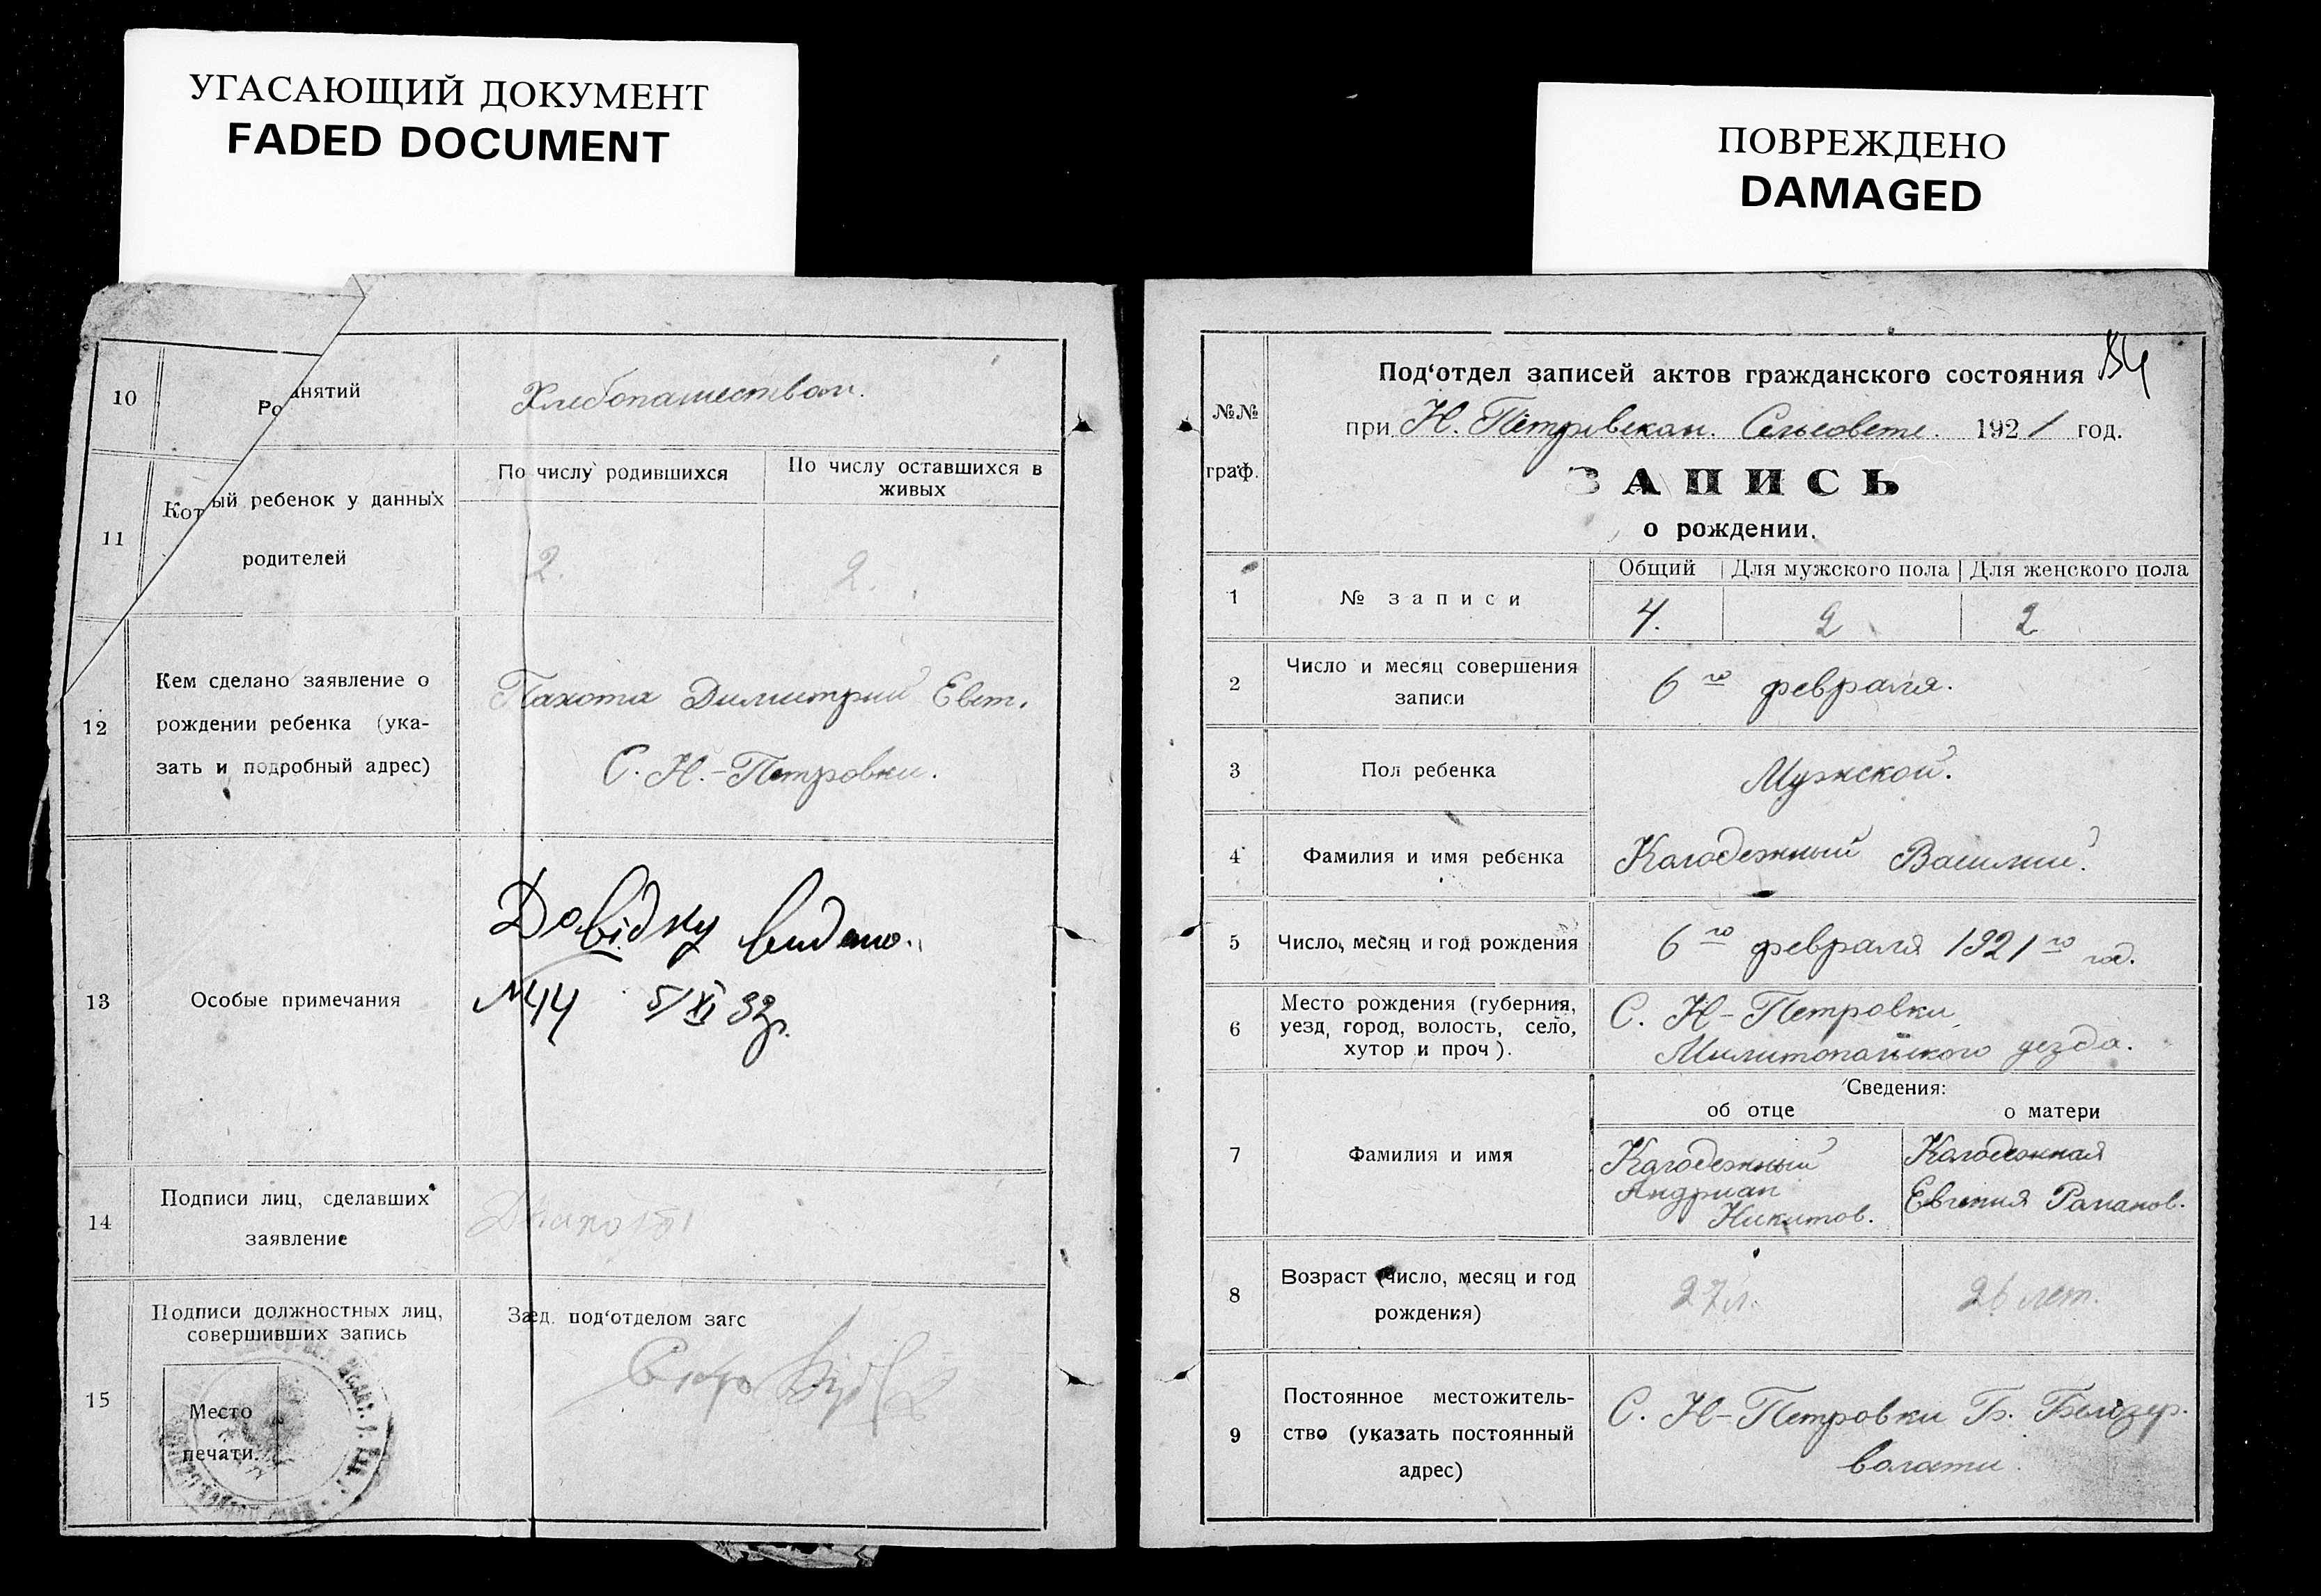 УГАСАЮЩИЙ ДОКУМЕНТ
FADED DOCUMENT
ПОВРЕЖДЕНО
DAMAGED
10
Ро
анятий
Хлебопашеством.
11
Кот
ый ребенок у данных
родителей
По числу родившихся
По числу оставшихся в
живых
2.
2.
12
Кем сделано заявление о
рождении ребенка (ука-
зать и подробный адрес)
Пахота Димитрий Евст.
С. Н.-Петровки.
13
Особые примечания
Довідку видано.
№44 5/XI 32р.
14
Подписи лиц, сделавших
заявление
15
Подписи должностных лиц,
совершивших запись
Место
печати.
Зав. под‘отделом загс
Под‘отдел записей актов гражданского состояния
№№
граф.
при Н. Петровскам. Сельсовете. 1921 год.
ЗАПИСЬ
о рождении.
1
№ записи
Общий
Для мужского пола
Для женского пола
4.
2
2
2
Число и месяц совершения
записи
6го февраля.
3
Пол ребенка
Мужской.
4
Фамилия и имя ребенка
Колодежный Василий.
5
Число, месяц и год рождения
6го февраля 1921го год.
6
Место рождения (губерния,
уезд, город, волость, село,
хутор и проч).
С. Н-Петровки
Милитопольского уезда.
7
Фамилия и имя
Сведения:
об отце
о матери
Колодежный
Андриан
Никитов.
Колодежная
Евгения Раманов.
8
Возраст (число, месяц и год
рождения)
27 л.
26 лет.
9
Постоянное местожитель-
ство (указать постоянный
адрес)
С. Н-Петровки Б. Белозер.
воласти.